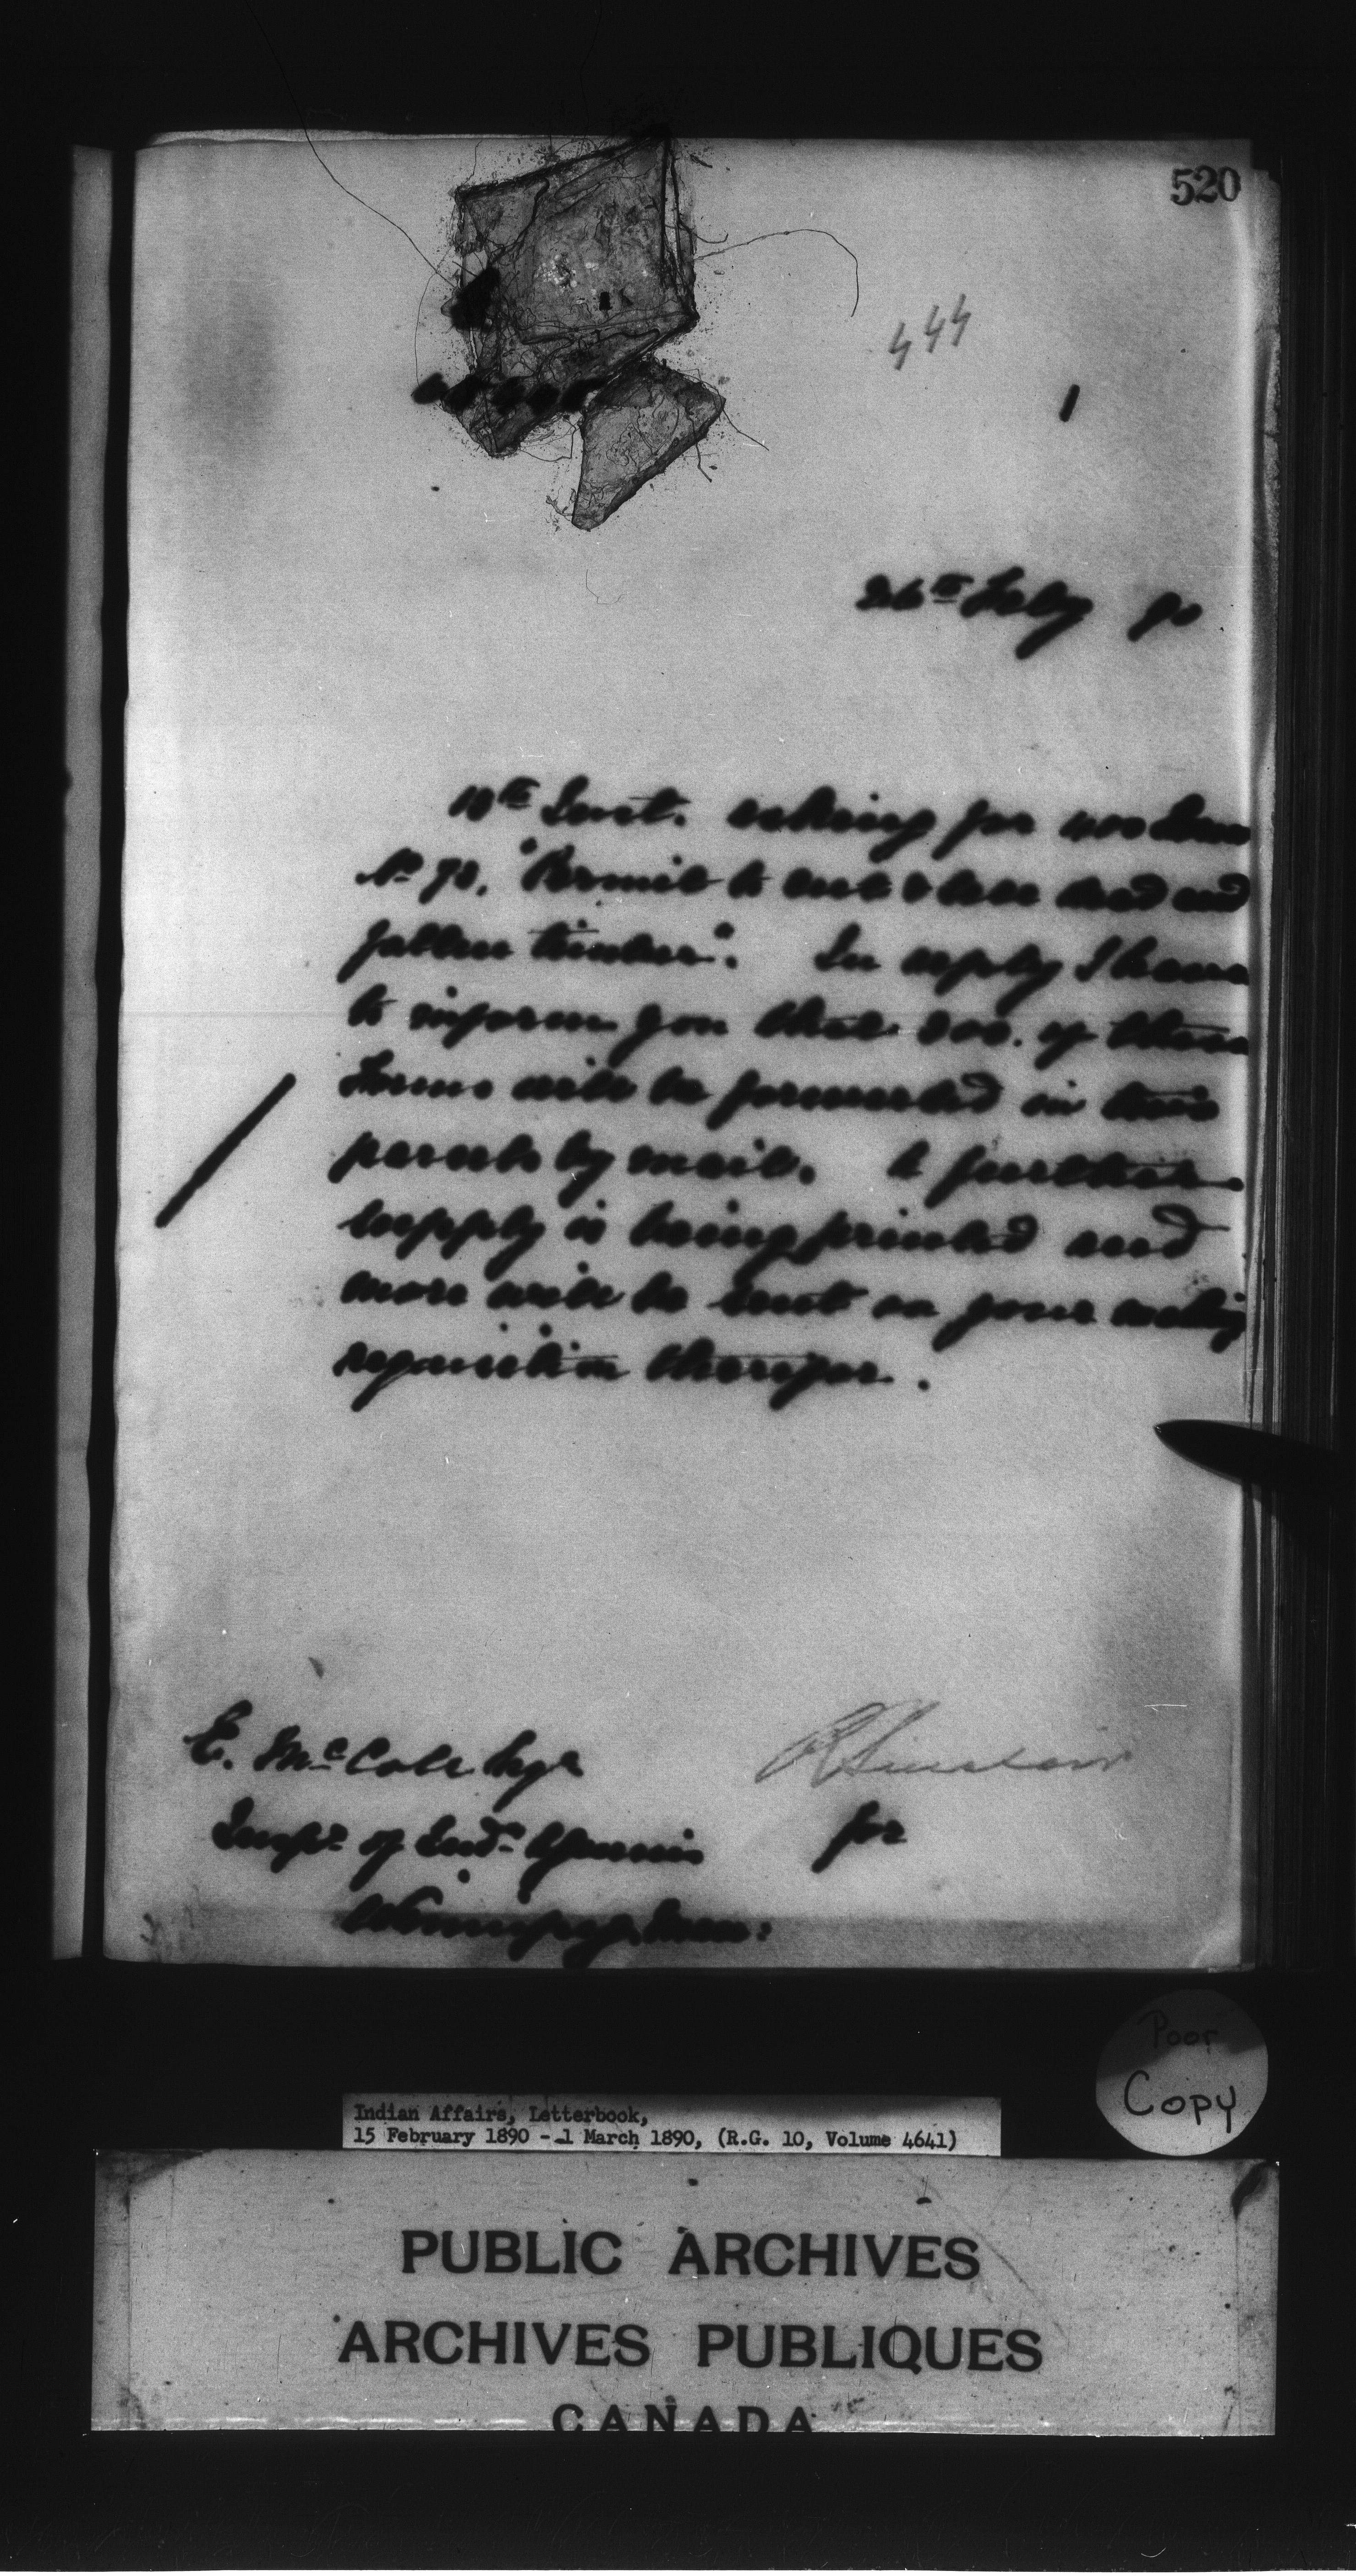 520
444
1
26th Feby 90
18th Inst. asking for 400 Forms
No 72. "Permit to cut & dead and
fallen timber". In reply I have
to inform you that 200. of these
Forms will be forwarded in two
parcels by mail. A further
supply is being printed and
more will be sent on your making
requisition therefor.
E. McColl Esqr
Inspr of Indn Agencies
Winnipeg, Man:
R Sinclair
for
Poor
Copy
Indian Affairs, Letterbook,
15 February 1890 - 1 March 1890, (R.G. 10, Volume 4641)
PUBLIC ARCHIVES
ARCHIVES PUBLIQUES
CANADA